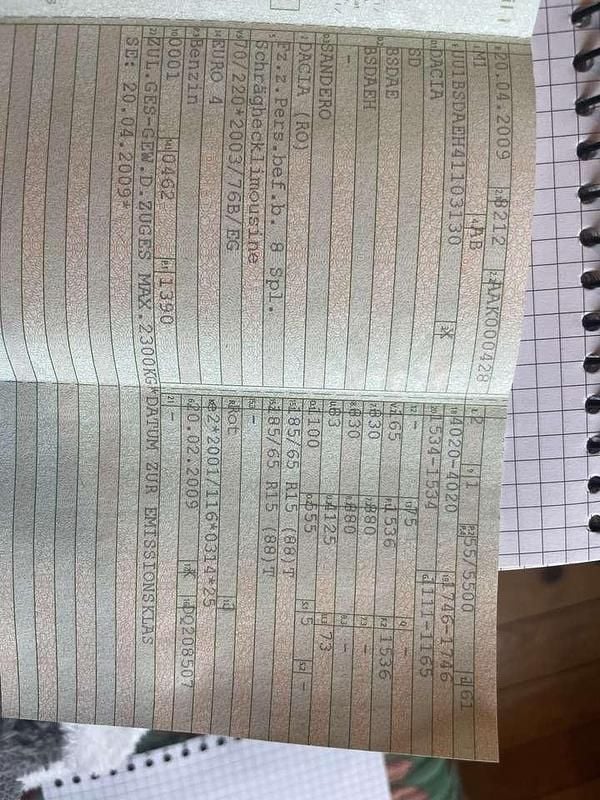 20.04.2009 8212 AAK000428
M1 AB
UU1BSDAEH41103130 K
DACIA
SD
BSDAE
BSDAEH
-
SANDERO
DACIA (RO)
Fz.z.Pers.bef.b. 8 Spl.
Schräghecklimousine
70/220*2003/76B/EG
EURO 4
Benzin
0001 0462 1390
2 1 55/5500 161
4020-4020 1746-1746
1534-1534 1111-1165
- 165 75 -
1536 1536
830 880 -
830 880 -
83 4125 73
1100 555 5 -
185/65 R15 (88)T
185/65 R15 (88)T
-
Rot
e2*2001/116*0314*25
.02.2009 K DQ208507
-
ZUL.GES-GEW.D.ZUGES MAX.2300KG*DATUM ZUR EMISSIONSKLAS
SE: 20.04.2009*